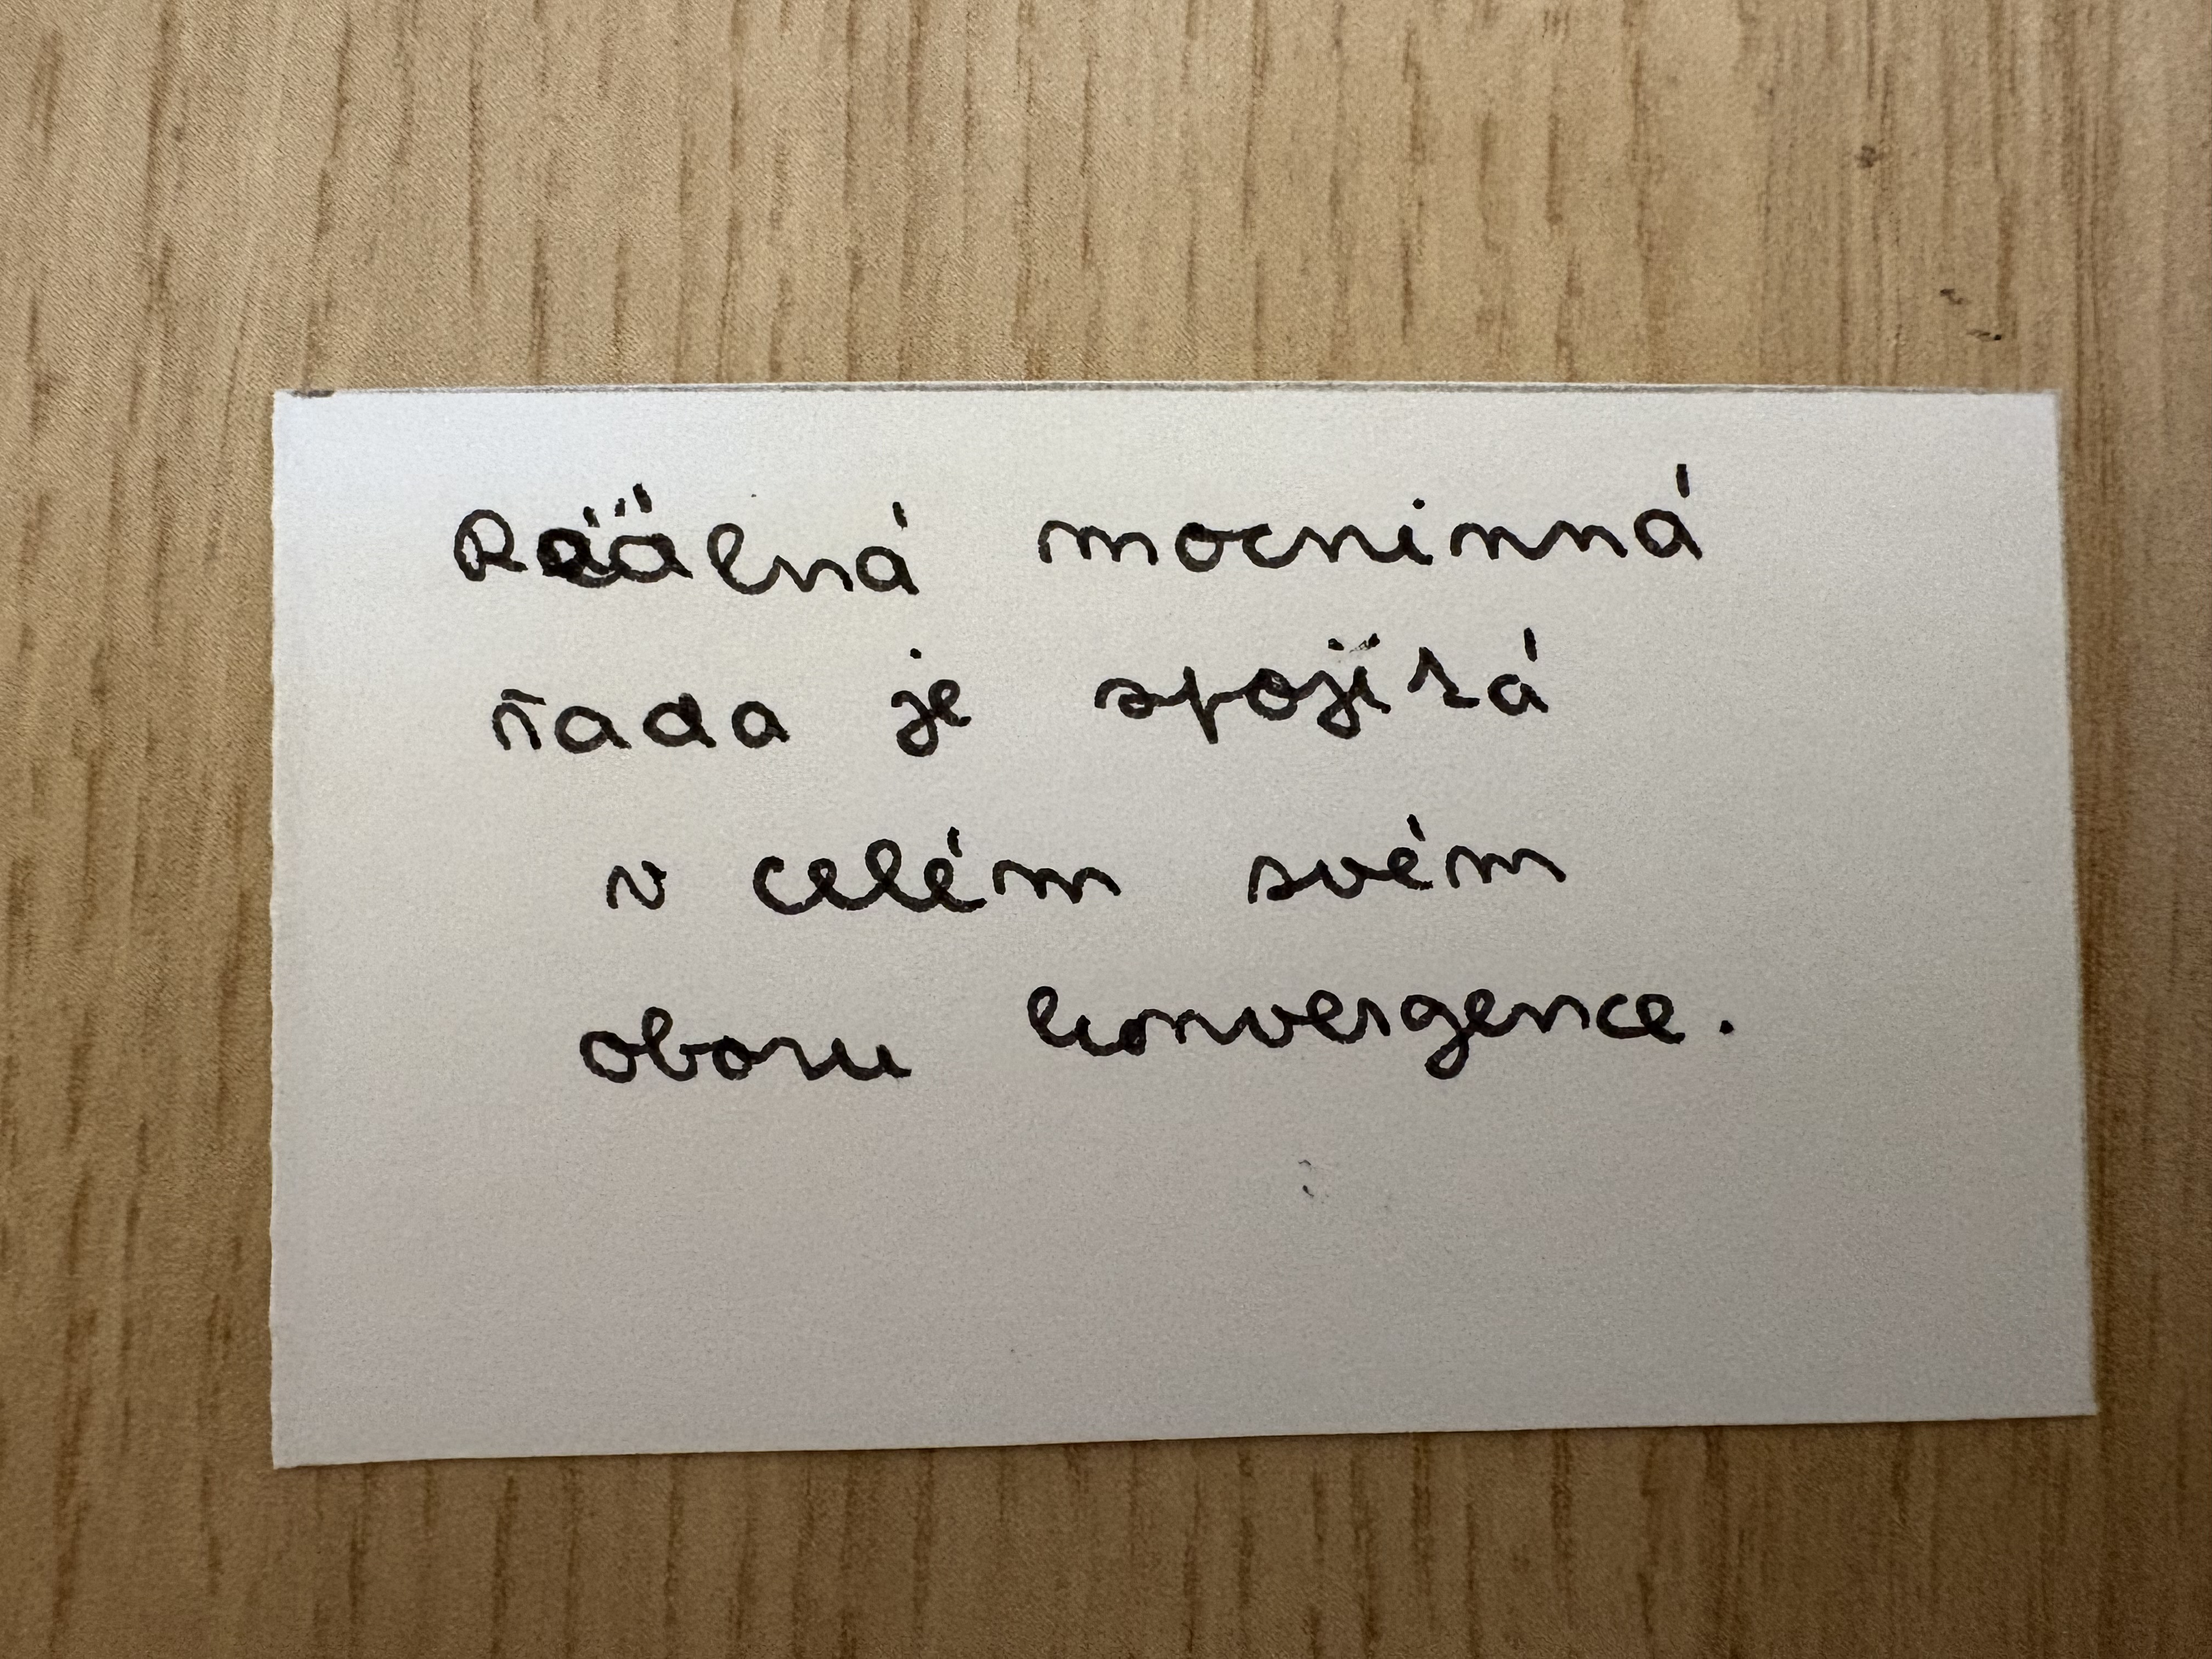 Reálná mocninná
řada je spojitá
v celém svém
oboru konvergence.